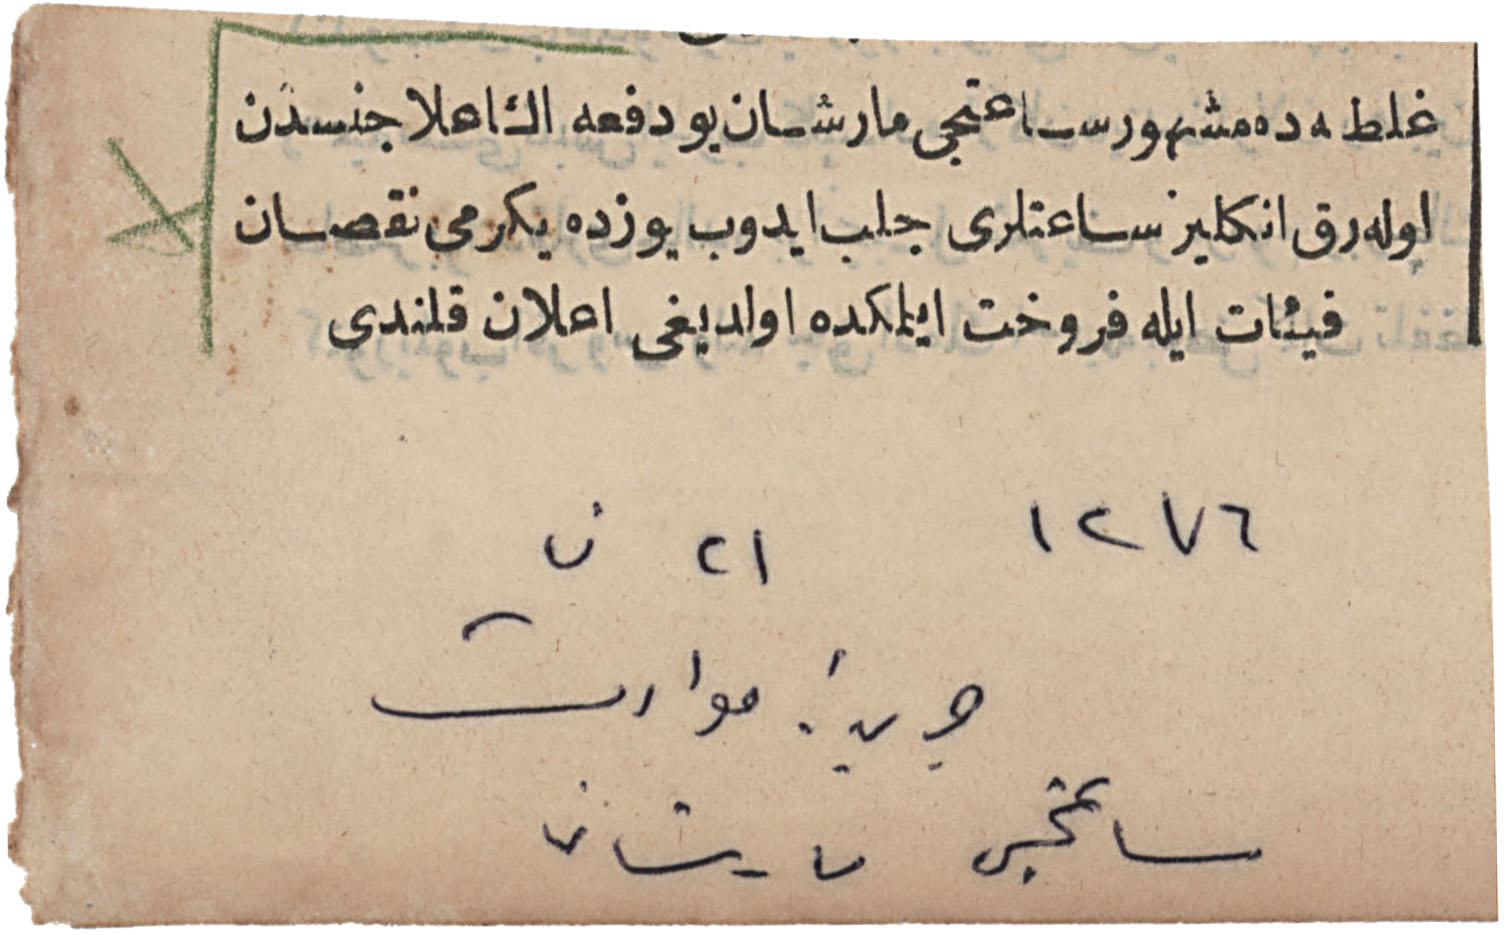 غلطه ده مشهور ساعتجی مارشان بو دفعه اك اعلا جنسدن
اوله رق انكلیز ساعتلری جلب ایدوب یوزده یكرمی نقصان
فیئات ایله فروخت ایلمكده اولدیغی اعلان قلندی
١٢٧٦ ٢١ ن
جریدهٔ حوادث
ساعتجی مارشان